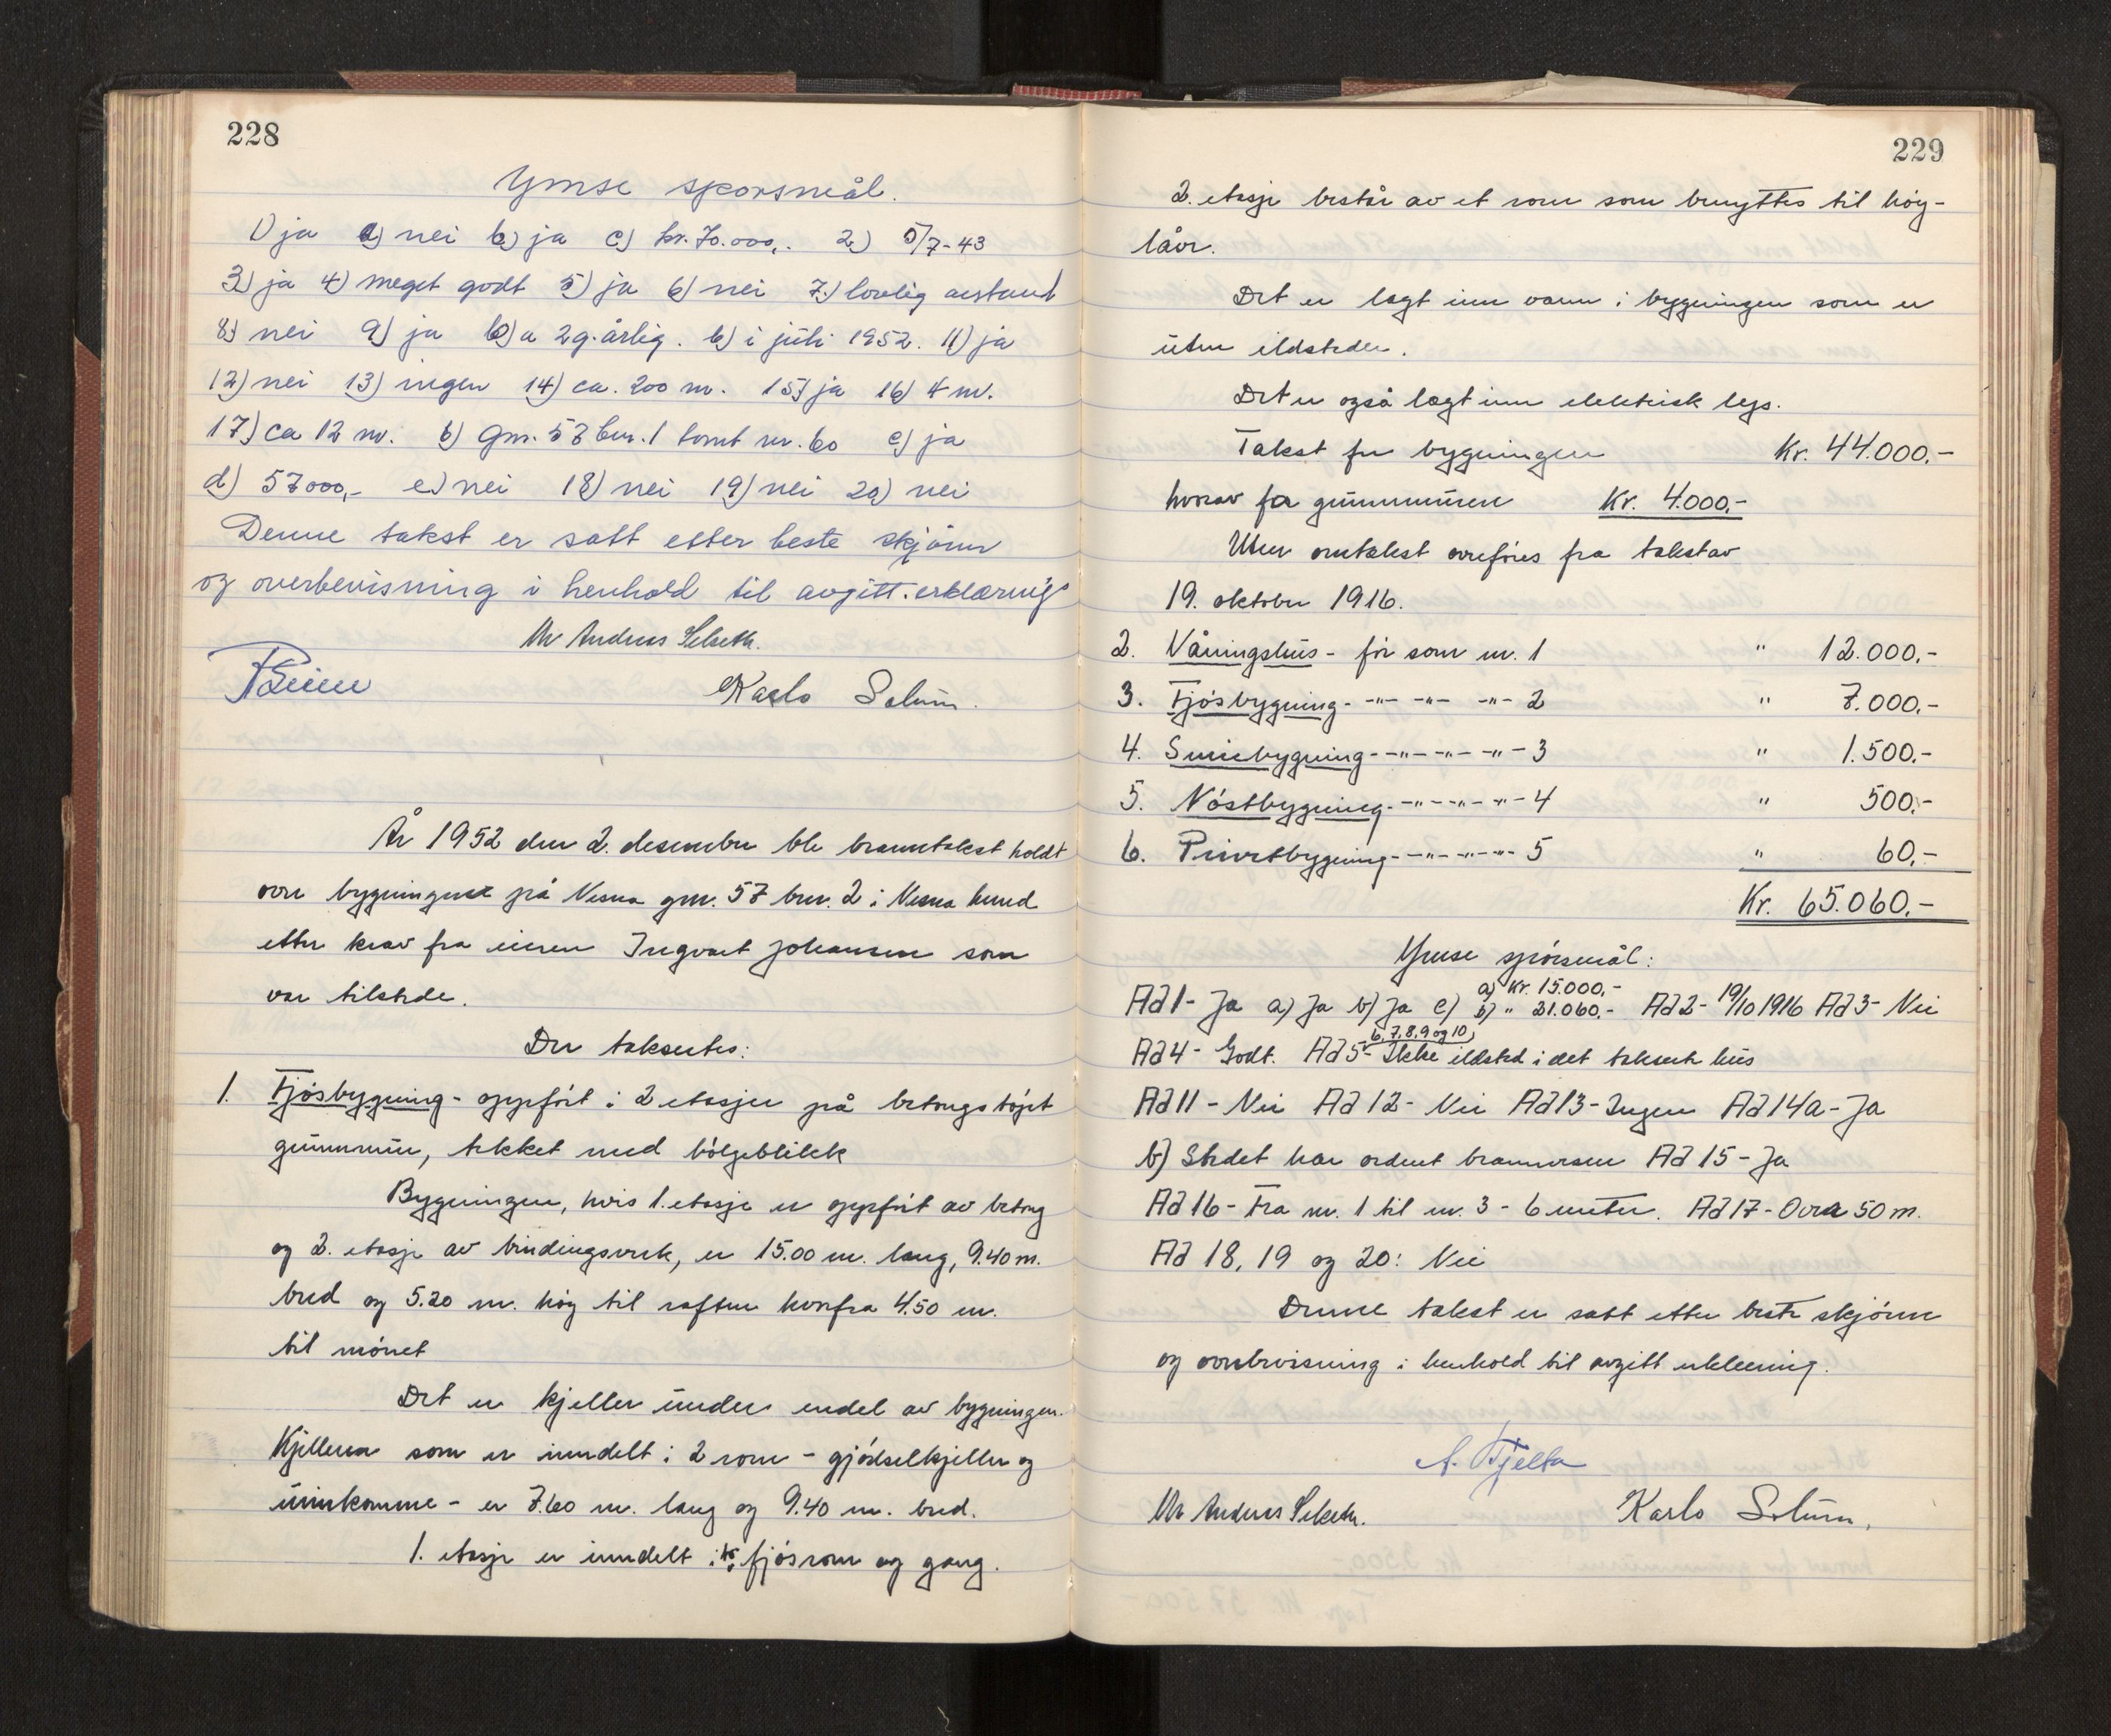 228
Ymse sporsmål.
1) ja a) nei b) ja c) kr. 70.000,. 2) 5/7-43
3) ja 4) meget godt 5) ja 6) nei 7.) lovlig avstand
8) nei 9) ja 10) a 2 g. årlig. b) i juli 1952. 11) ja
12) nei 13) ingen 14) ca. 200 m. 15) ja 16) 4 m.
17.) ca 12 m. b) Gnr. 57 bnr. 1 tomt nr. 60 c) ja
d) 57000,- e) nei 18) nei 19) nei 20) nei
Denne takst er satt etter beste skjönn
og overbevisning i henhold til avgitt erklæring
Andreas Selseth.
Karlo Solum.
År 1952 den 2. desember ble branntakst holdt
over bygningene på Nesna gnr. 57 bnr. 2 i Nesna herred
etter krav fra eieren Ingvart Johansen som
var tilstede.
Der taksertes:
1. Fjósbygning - oppfört i 2 etasjer på betongstöpt
grunnmur, tekket med bölgeblikk
Bygningen, hvis 1. etasje er oppfört av betong
og 2. etasje av bindingsverk, er 15.00 m. lang, 9.40 m.
bred og 5.20 m. höy til raften hvorfra 4.50 m.
til mönet
Det er kjeller under endel av bygningen.
Kjelleren som er inndelt i 2 rom - gjödselkjeller og
urinkomme - er 7.60 m. lang og 9.40 m. bred.
1. etasje er inndelt i fjösrom og gang.
229
2. etasje består av et rom som benyttes til höy-
låve.
Det er lagt inn vann i bygningen som er
uten ildsteder.
Det er også lagt inn elektrisk lys.
Takst for bygningen Kr. 44.000.-
hvorav for grunnmuren Kr. 4.000.-
Uten omtakst overföres fra takst av
19. oktober 1916.
2. Våningshus - för som nr. 1 " 12.000.-
3. Fjósbygning - -"- -"- -"- 2 " 7.000.-
4. Smiebygning - -"- -"- -"- 3 " 1.500.-
5. Nóstbygning - -"- -"- -"- 4 " 500.-
6. Privetbygning - -"- -"- -"- 5 " 60,-
Kr. 65.060.-
Ymse spörsmål:
a) Kr. 15.000,-
Ad 1 - Ja a) Ja b) Ja c) b) " 21.060.- Ad 2 - 19/10 1916 Ad 3 - Nei
6, 7, 8, 9 og 10)
Ad 4 - Godt. Ad 5 - Ikke ildsted i det takserte hus
Ad 11 - Nei Ad 12 - Nei Ad 13 - Ingen Ad 14a - Ja
b) Stedet har ordnet brannvesen Ad 15 - Ja
Ad 16 - Fra nr. 1 til nr. 3 - 6 meter. Ad 17 - Over 50 m.
Ad 18, 19 og 20: Nei
Denne takst er satt etter beste skjönn
og overbevisning i henhold til avgitt erklæring.
A. Fjelta
Andreas Selseth. Karlo Solum.